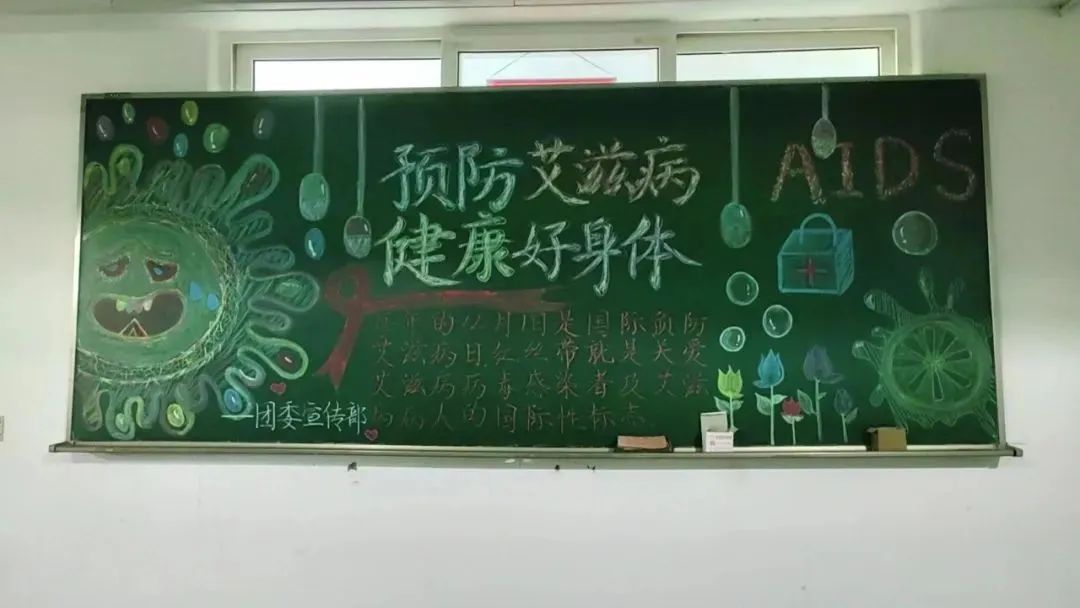 预防艾滋病
健康好身体
AIDS
每年的12月1日是国际预防
艾滋病日红丝带就是关爱
艾滋病病毒感染者及艾滋
病病人的国际性标志
—团委宣传部